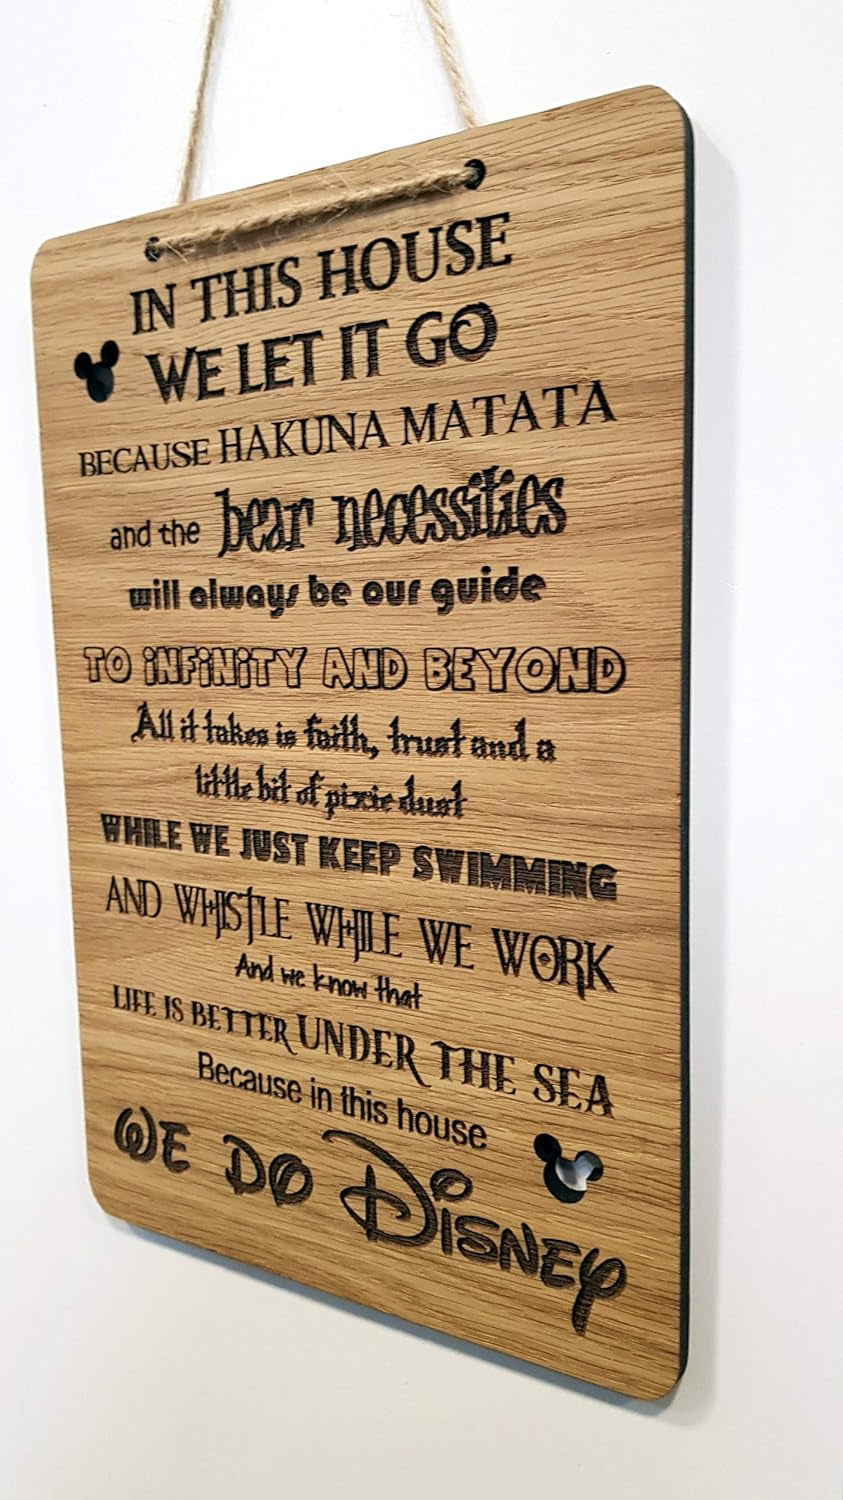 IN THIS HOUSE
WE LET IT GO
BECAUSE HAKUNA MATATA
and the bear necessities
will always be our guide
TO iNFiNiTY AND BEYOND
All it takes is faith, trust and a
little bit of pixie dust
WHILE WE JUST KEEP SWIMMING
AND WHISTLE WHILE WE WORK
And we know that
LIFE IS BETTER UNDER THE SEA
Because in this house
WE DO DISNEY